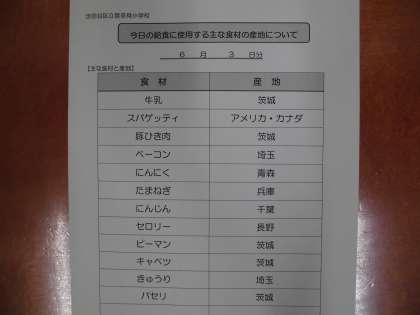 今日の給食に使用する主な食材の産地について
6 月 3 日分
【主な食材と産地】
食材 産地
牛乳 茨城
スパゲッティ アメリカ・カナダ
豚ひき肉 茨城
ベーコン 埼玉
にんにく 青森
たまねぎ 兵庫
にんじん 千葉
セロリー 長野
ピーマン 茨城
キャベツ 茨城
きゅうり 埼玉
パセリ 茨城